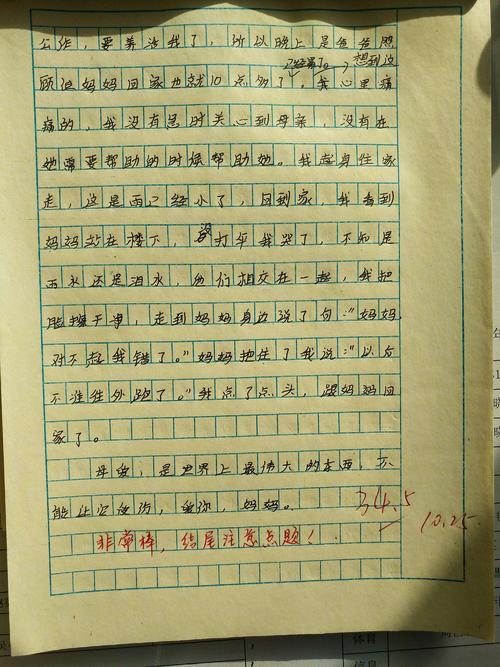 工作，要养活我了，所以晚上是爸爸照
已经累了。，想到这
顾但妈妈回家也就10点多了。我心里痛
痛的，我没有急时关心到母亲，没有在
她需要帮助的时候帮助她。我起身往家
走，这是雨已经小了，回到家，我看到
妈妈站在楼下，没打伞我哭了，不知是
雨水还是泪水，他们相交在一起，我把
脸擦干净，走到妈妈身边说了句："妈妈
对不起我错了。"妈妈抱住了我说："以后
不准往外跑了。"我点了点头，跟妈妈回
家了。
母爱，是世界上最伟大的东西，不
能让它受伤，爱你，妈妈。
34.5
10.25
非常棒，结尾注意点题！